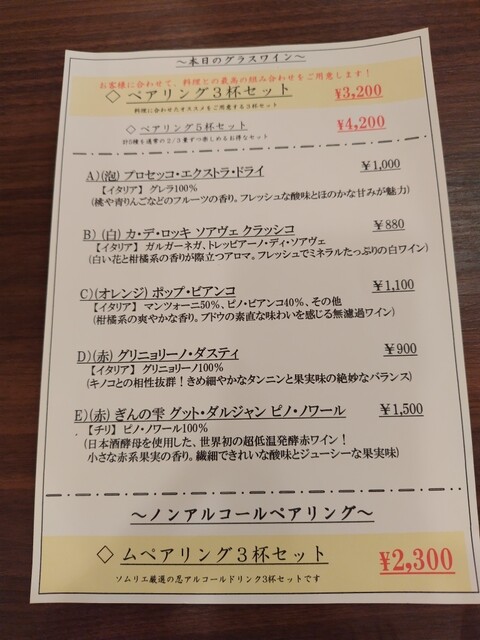 ～本日のグラスワイン～
お客様に合わせて、料理との最高の組み合わせをご用意します！
◇ ペアリング３杯セット ¥3,200
料理に合わせたオススメをご用意する３杯セット
◇ ペアリング５杯セット ¥4,200
計5種を通常の２/３量ずつ楽しめるお得なセット
A）(泡) プロセッコ・エクストラ・ドライ ￥1,000
【イタリア】 グレラ100％
（桃や青りんごなどのフルーツの香り。フレッシュな酸味とほのかな甘みが魅力）
B） (白) カ・デ・ロッキ ソアヴェ クラッシコ ￥880
【イタリア】 ガルガーネガ、トレッビアーノ・ディ・ソアヴェ
（白い花と柑橘系の香りが際立つアロマ。フレッシュでミネラルたっぷりの白ワイン）
C）(オレンジ) ポップ・ビアンコ ￥1,100
【イタリア】 マンツォーニ50％、ピノ・ビアンコ40％、その他
（柑橘系の爽やかな香り。ブドウの素直な味わいを感じる無濾過ワイン）
D）(赤) グリニョリーノ・ダスティ ￥900
【イタリア】 グリニョリーノ100％
（キノコとの相性抜群！きめ細やかなタンニンと果実味の絶妙なバランス）
E）(赤) ぎんの雫 グット・ダルジャン ピノ・ノワール ￥1,500
【チリ】 ピノ・ノワール100％
（日本酒酵母を使用した、世界初の超低温発酵赤ワイン！
小さな赤系果実の香り。繊細できれいな酸味とジューシーな果実味）
～ノンアルコールペアリング～
◇ ムペアリング３杯セット ¥2,300
ソムリエ厳選の忍アルコールドリンク3杯セットです